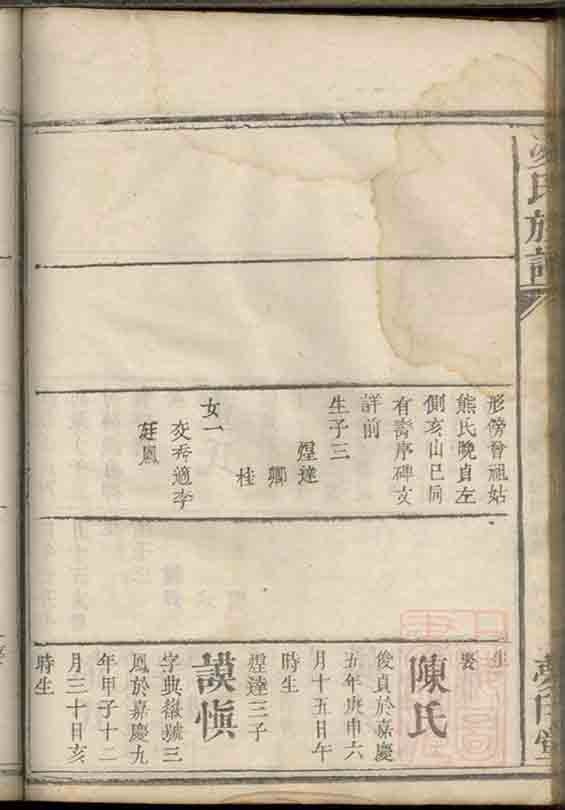 氏族譜
形傍曾祖姑
熊氏晚貞左
側亥山巳向
有壽序碑文
詳前
生子三
煌達
卿
桂
女一
交秀適李
廷鳳
生
娶
陳氏
俊貞於嘉慶
五年庚申六
月十五日午
時生
煌達三子
謨慎
字典徽號三
鳳於嘉慶九
年甲子十二
月三十日亥
時生